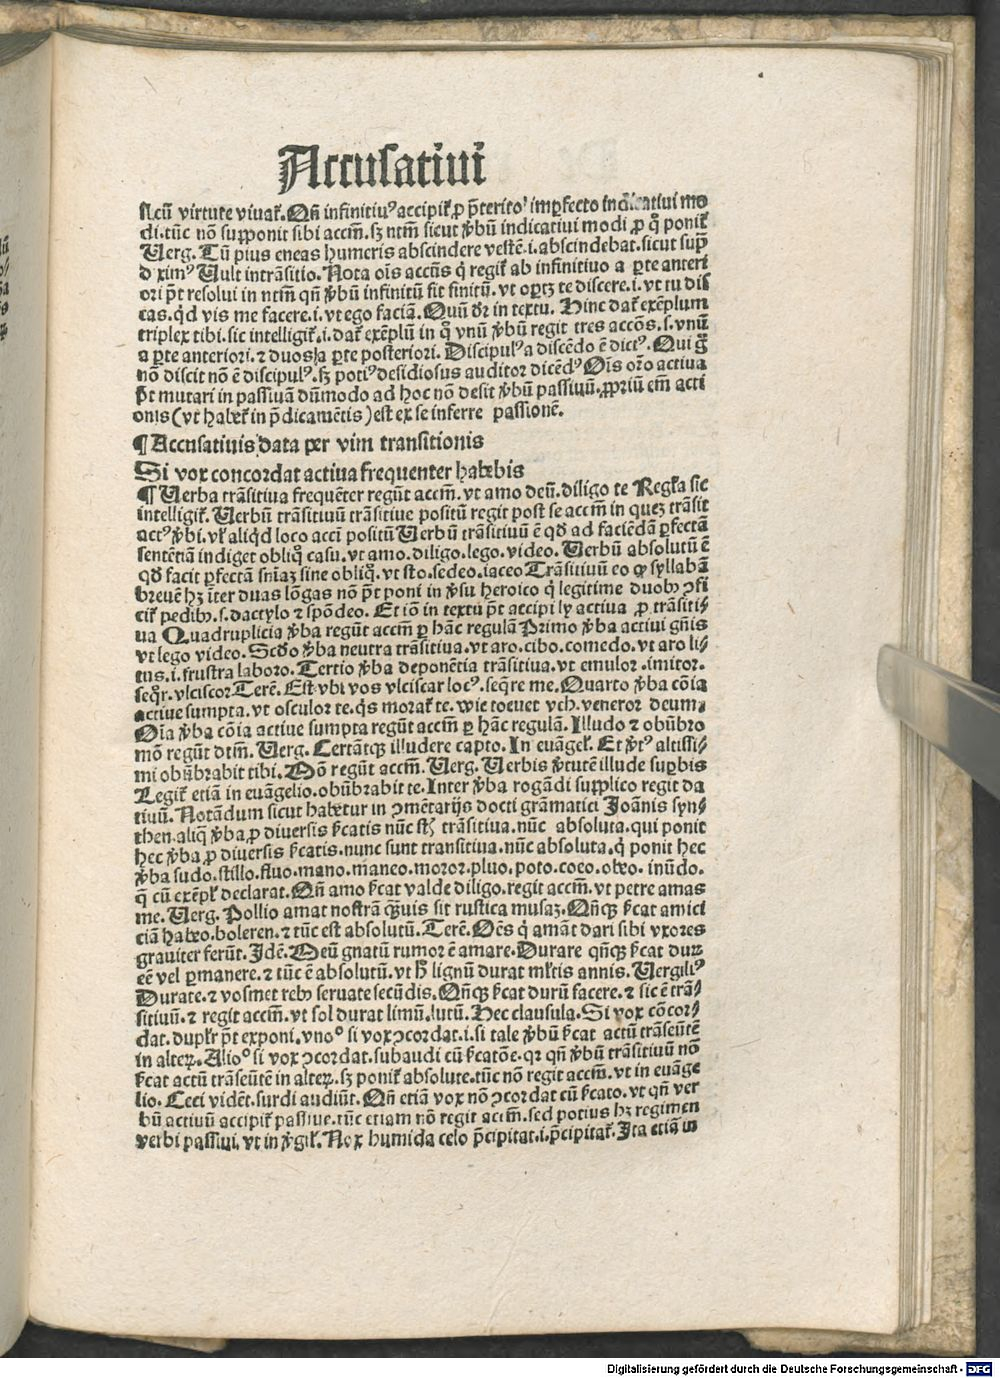 Accusatiui
Acū virtute viuat̄. Qn̄ infinitiuꝰ accipit̄ ꝓ p̄terito imꝑfecto indicatiui mo
di. tūc nō supponit sibi accm̄. sꝫ ntm̄ sicut v̄bū indicatiui modi ꝓ q̄ ponit̄
Verg. Tū pius eneas humeris abscindere vestē. i. abscindebat. sicut sup̄
Vult intrāsitio. Nota oīs accn̄s q̇ regit̄ ab infinitiuo a ꝑte anteri
ori p̄t resolui in ntm̄ qn̄ v̄bū infinitū fit finitū. vt oꝑtꝫ te discere. i. vt tu dis
cas. qd vis me facere. i. vt ego faciā. Quū dr̄ in textu. Hinc dat̄ exēplum
triplex tibi. sic intelligit̄. i. dat̄ exēplū in q̇ vnū v̄bū regit tres accōs. s. vnū
a ꝑte anteriori. ⁊ duos a ꝑte posteriori. Discipulꝰ a discēdo ē dictꝰ. Qui g̊
nō discit nō ē discipulꝰ. sꝫ potiꝰ desidiosus auditor dicēdꝰ Oīs or̄o actiua
p̄t mutari in passiuā dūmodo ad hoc nō desit v̄bū passiuū. ꝓpriū em̄ acti
onis (vt habet̄ in p̄dicamētis) est ex se inferre passionē.
¶ Accusatiuis data per vim transitionis
Si vox concordat actiua frequenter habebis
¶ Verba trāsitiua frequēter regūt accm̄. vt amo deū. diligo te Regl̄a sic
intelligit̄. Verbū trāsitiuū trāsitiue positū regit post se accm̄ in queꝫ trāsit
actꝰ v̄bi. vl̄ aliqd loco acci positū Verbū trāsitiuū ē qd̄ ad faciēdā ꝑfectā
sententiā indiget obliq̇ casu. vt amo. diligo. lego. video. Verbū absolutū ē
qd̄ facit ꝑfectā sn̄iaꝫ sine obliq̇. vt sto. sedeo. iaceo Trāsitiuū eo ꝙ syllabā
breuē hꝫ īter duas lōgas nō p̄t poni in v̄su heroico q̇ legitime duobꝰ ꝯfi
cit̄ pedibꝰ. s. dactylo ⁊ spōdeo. Et iō in textu p̄t accipi ly actiua ꝓ trāsiti⸗
ua Quadruplicia v̄ba regūt accm̄ ꝑ hāc regulā Primo v̄ba actiui gn̄is
vt lego video. Scd̄o v̄ba neutra trāsitiua. vt aro. cibo. comedo. vt aro li⸗
tus. i. frustra laboro. Tertio v̄ba deponētia trāsitiua. vt emulor. imitor.
seqr̄. vlciscor Terē. Est vbi vos vlciscar locꝰ. seq̄re me. Quarto v̄ba cōia
actiue sumpta. vt osculor te. q̄s morat̄ te. wie toeuet vch. veneror deum.
Oīa v̄ba cōia actiue sumpta regūt accm̄ ꝑ hāc regulā. Illudo ⁊ obūbro
mō regūt dtm̄. Verg. Certātqꝫ illudere capto. In euāgel̄. Et v̄tꝰ altissi⸗
mi obūbrabit tibi. Mō regūt accm̄. Verg. Verbis v̄tutē illude suꝑbis
Legit̄ etiā in euāgelio. obūbrabit te. Inter v̄ba rogādi supplico regit da
tiuū. Notādum sicut habetur in ꝯmētarijs docti grāmatici Joānis syn⸗
then. aliq̄ v̄ba ꝓ diuersis s̄catis nūc st̄ trāsitiua. nūc absoluta. qui ponit
hec v̄ba ꝓ diuersis s̄catis. nunc sunt transitiua. nūc absoluta. q̇ ponit hec
v̄ba sudo. stillo. fluo. mano. maneo. moror. pluo. poto. coeo. obeo. inūdo.
q̄ cū exēpl̄ declarat. Qn̄ amo s̄cat valde diligo. regit accm̄. vt petre amas
me. Verg. Pollio amat nostrā qȝuis sit rustica musaꝫ. Qn̄qꝫ s̄cat amici
ciā habeo. boleren. ⁊ tūc est absolutū. Terē. Oēs q̇ amāt dari sibi vxores
grauiter ferūt. Jdē. Meū gnatū rumor ē amare. Durare qn̄qꝫ s̄cat duꝝ
eē vel ꝑmanere. ⁊ tūc ē absolutū. vt h̄ lignū durat ml̄tis annis. Vergiliꝰ
Durate. ⁊ vosmet rebꝰ seruate secūdis. Qn̄qꝫ s̄cat durū facere. ⁊ sic ē trā⸗
sitiuū. ⁊ regit accm̄. vt sol durat limū. lutū. Hec clausula. Si vox cōcor⸗
dat. duplr̄ p̄t exponi. vno° si vox ꝯcordat. i. si tale v̄bū s̄cat actū trāseūtē
in alteꝝ. Alio° si vox ꝯcordat. subaudi cū s̄catōe. qꝛ qn̄ v̄bū trāsitiuū nō
s̄cat actū trāseūtē in alteꝝ. sꝫ ponit̄ absolute. tūc nō regit accm̄. vt in euāge
lio. Ceci vidēt. surdi audiūt. Qn̄ etiā vox nō ꝯcordat cū s̄cato. vt qn̄ ver
bū actiuū accipit̄ passiue. tūc etiam nō regit accm̄. sed potius hꝫ regimen
verbi passiui. vt in v̄gil̄. Nox humida celo p̄cipitat. i. p̄cipitat̄. Ita etiā in
Digitalisierung gefördert durch die Deutsche Forschungsgemeinschaft - DFG